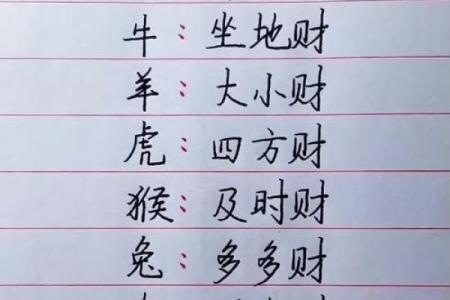 牛：坐地财
羊：大小财
虎：四方财
猴：及时财
兔：多多财